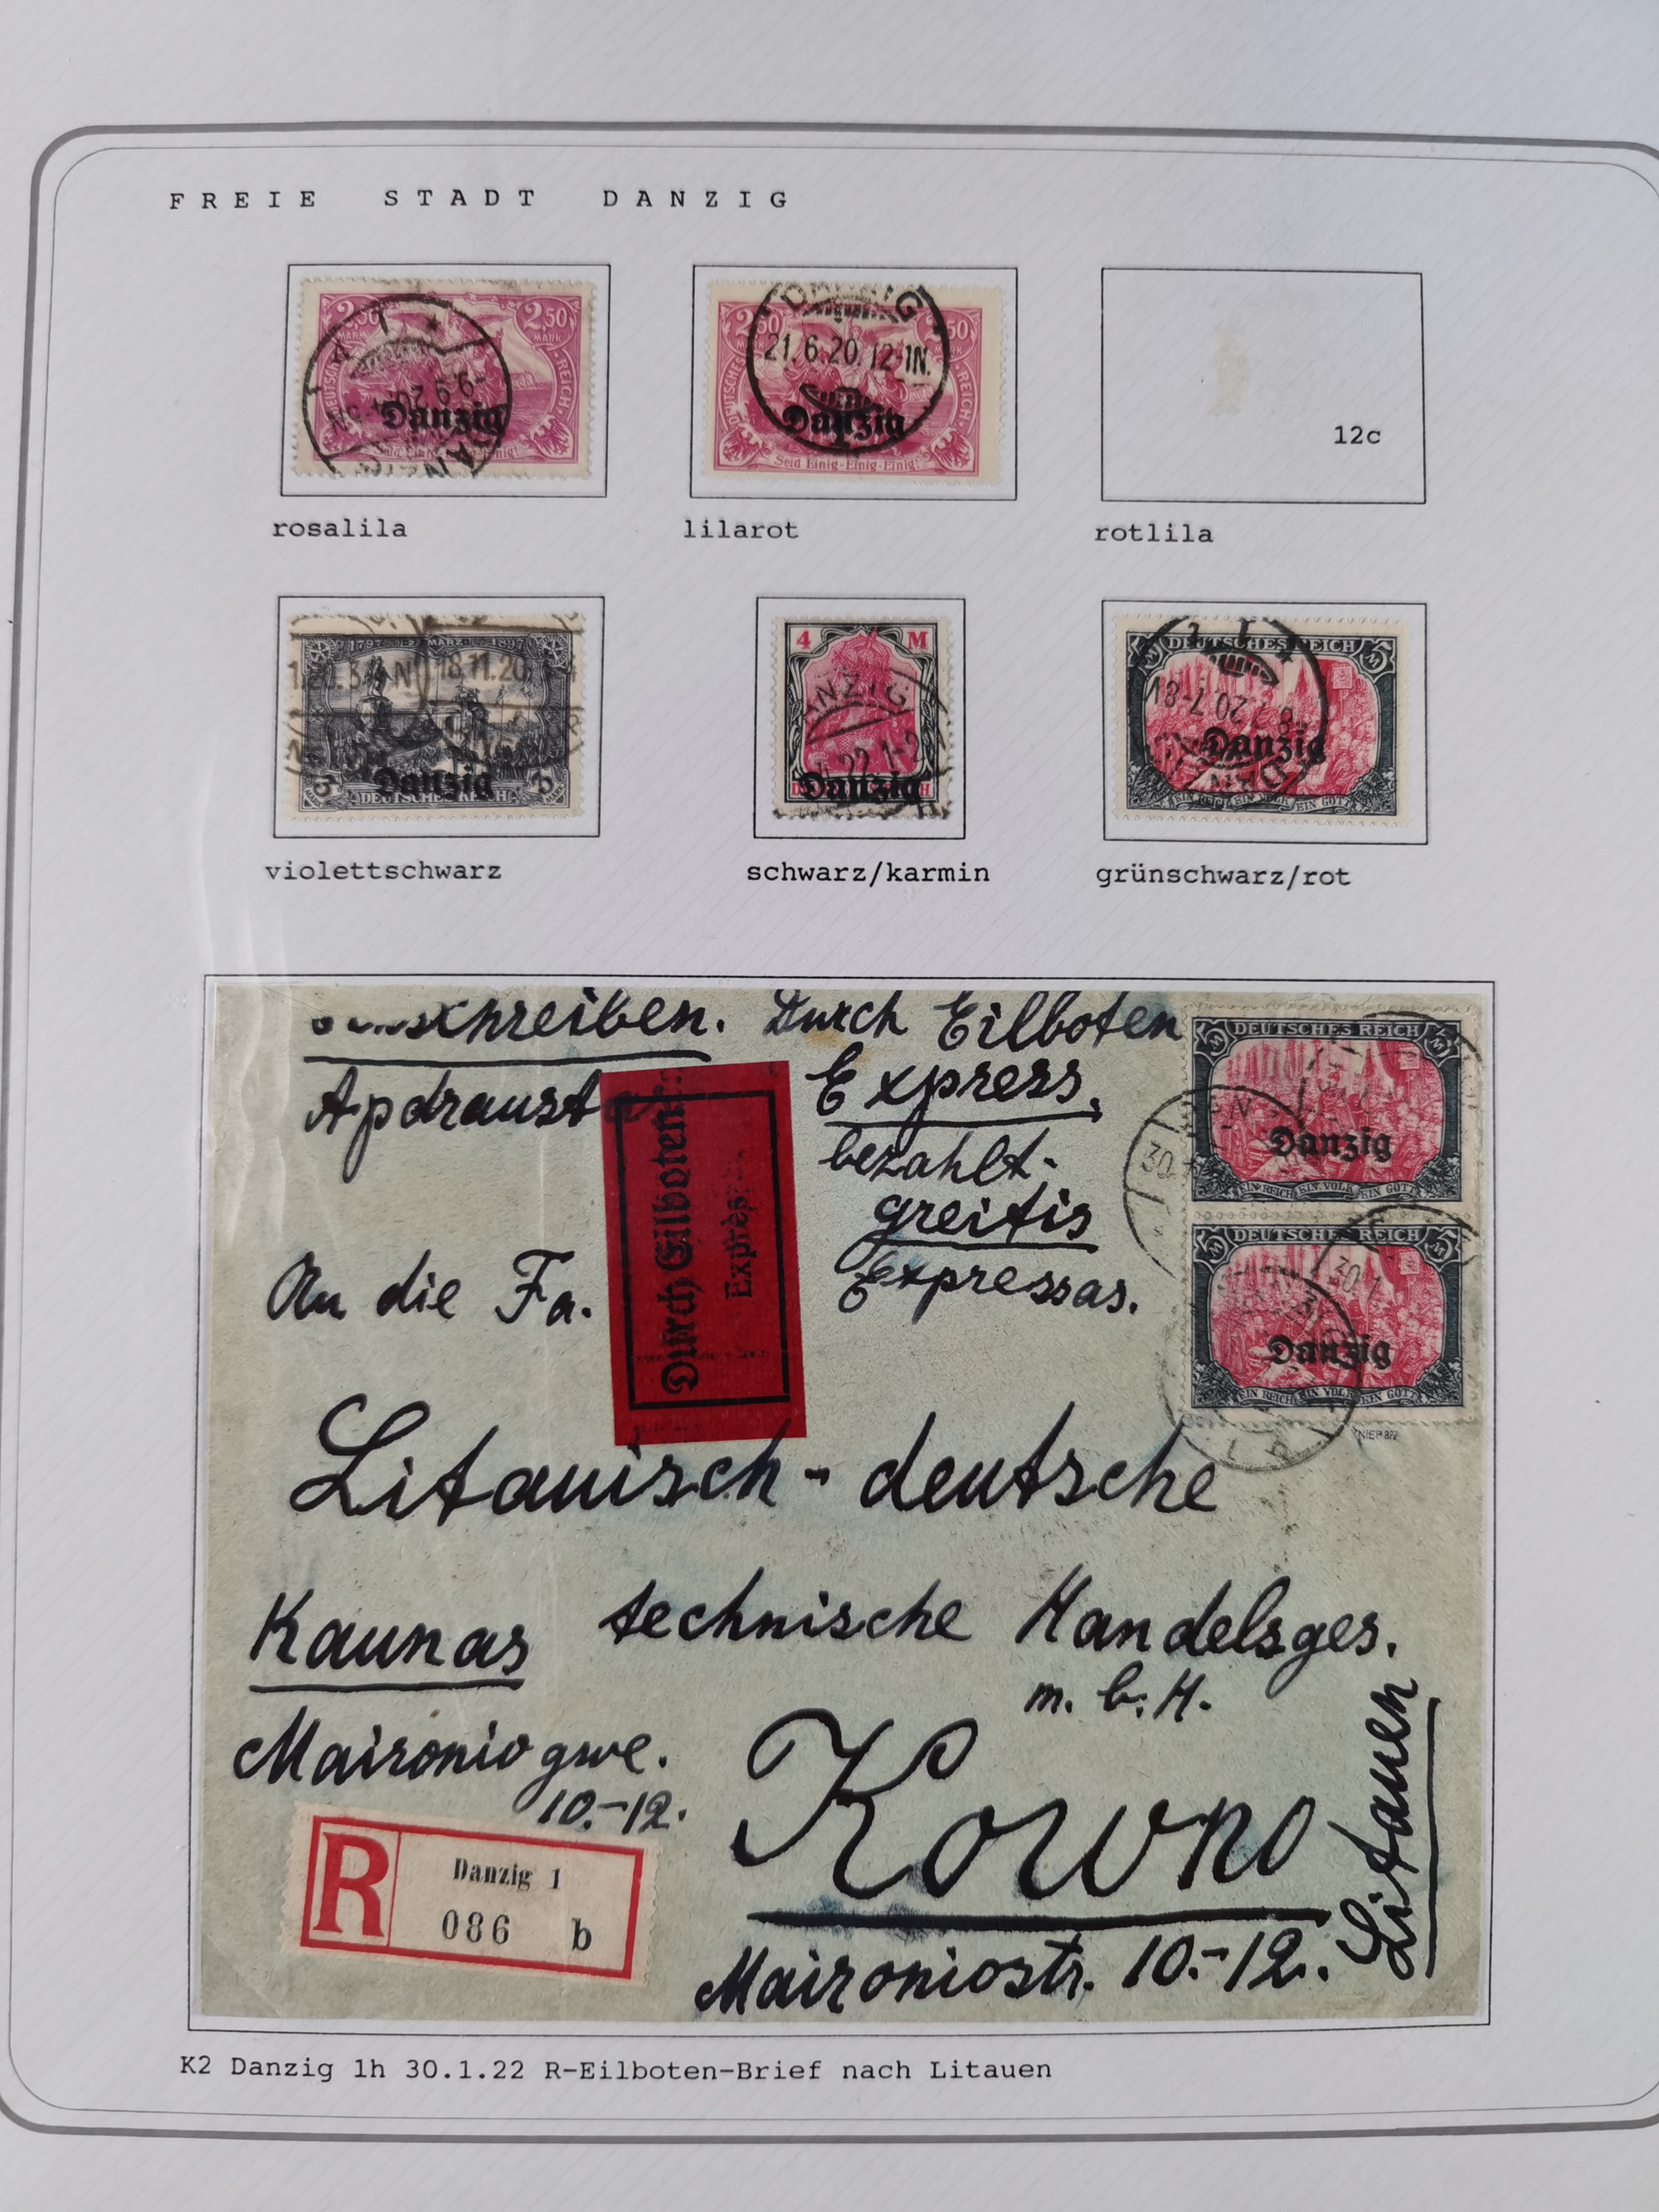 FREIE STADT DANZIG
2,50 2,50
MARK MARK
DEUTSCHES REICH
Danzig
Seid Einig-Einig-Einig!
DANZIG
21.6.20.12-1N.
2,50 2,50
DEUTSCHES REICH
Danzig
Seid Einig-Einig-Einig!
12c
rosalila
lilarot
rotlila
18.11.20
Danzig
3 3
DEUTSCHES REICH
4 M
DANZIG
22 1-2
Danzig
DEUTSCHES REICH
5 5
7-8N
Danzig
EIN REICH EIN VOLK EIN GOTT
violettschwarz
schwarz/karmin
grünschwarz/rot
Durch Eilboten
Express.
Apdrausta
bezahlt.
greitis
Expressas.
Durch Eilboten
Exprès
DEUTSCHES REICH
5 5
Danzig
EIN REICH EIN VOLK EIN GOTT
DEUTSCHES REICH
5 5
30.1
Danzig
EIN REICH EIN VOLK EIN GOTT
An die Fa.
Litauisch-deutsche
technische Handelsges.
m. b. H.
Kaunas
Maironio gwe.
10.-12.
Kowno
Litauen
Maironiostr. 10.-12.
R
Danzig 1
086 b
K2 Danzig 1h 30.1.22 R-Eilboten-Brief nach Litauen